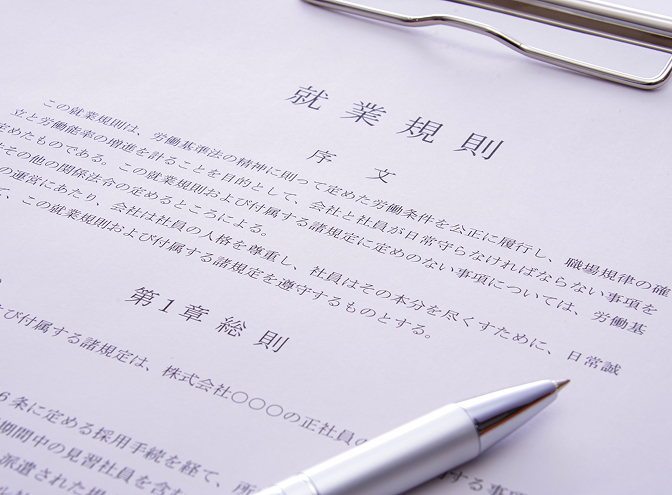 就業規則
序文
この就業規則は、労働基準法の精神に則って定めた労働条件を公正に履行し、職場規律の確
立と労働能率の増進を計ることを目的として、会社と社員が日常守らなければならない事項を
定めたものである。この就業規則および付属する諸規定に定めのない事項については、労働基
その他の関係法令の定めるところによる。
の運営にあたり、会社は社員の人格を尊重し、社員はその本分を尽くすために、日常誠
、この就業規則および付属する諸規定を遵守するものとする。
第1章総則
び付属する諸規定は、株式会社○○○の正社員の
する事
6条に定める採用手続を経て、所
期間中の見習社員を含
派遣された場